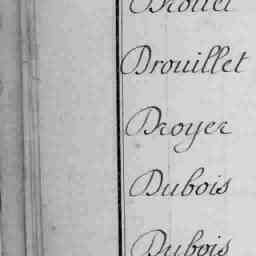 Drouet
Drouillet
Droyer
Dubois
Dubois